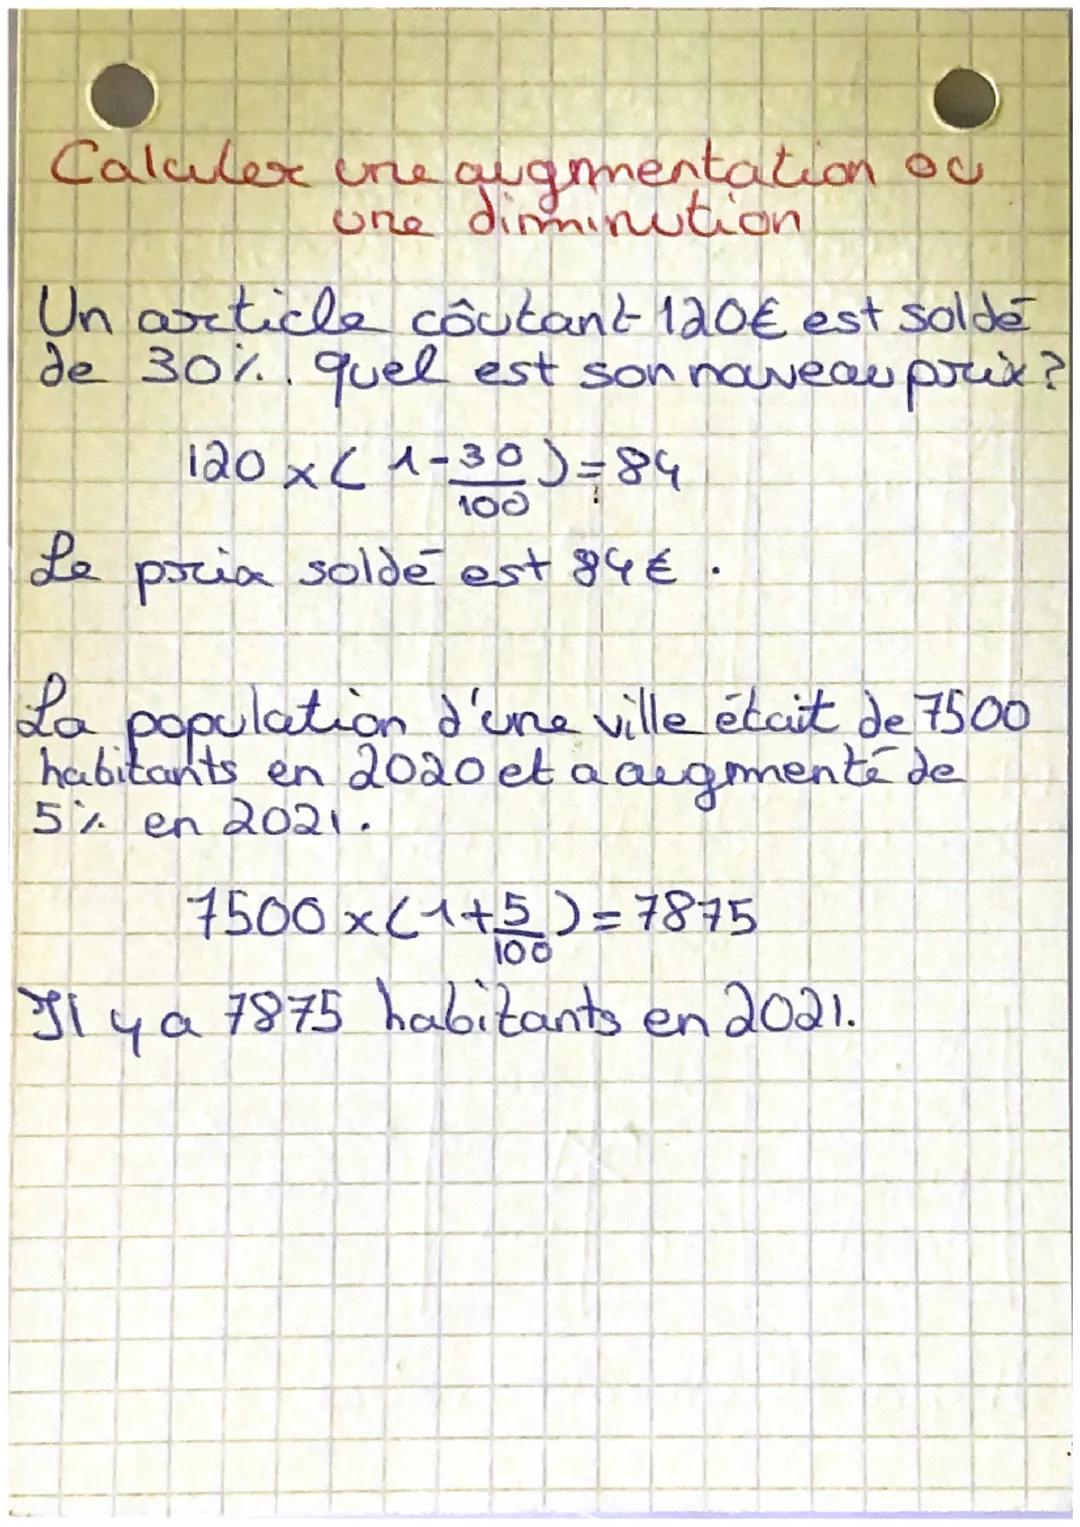 Calculer une augmentation ou
une diminution
Un article coûtant 120€ est soldé
de 30%. quel est son nouveau prix?
120 x ( 1 - 30/100 ) = 84
Le prix soldé est 84€.
La population d'une ville était de 7500
habitants en 2020 et a augmenté de
5% en 2021.
7500 x ( 1 + 5/100 ) = 7875
Il y a 7875 habitants en 2021.